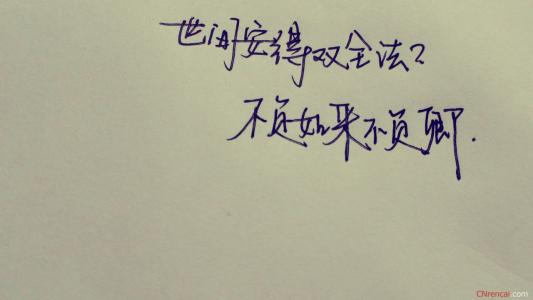 世间安得双全法?
不负如来不负卿.
CNrencai.com